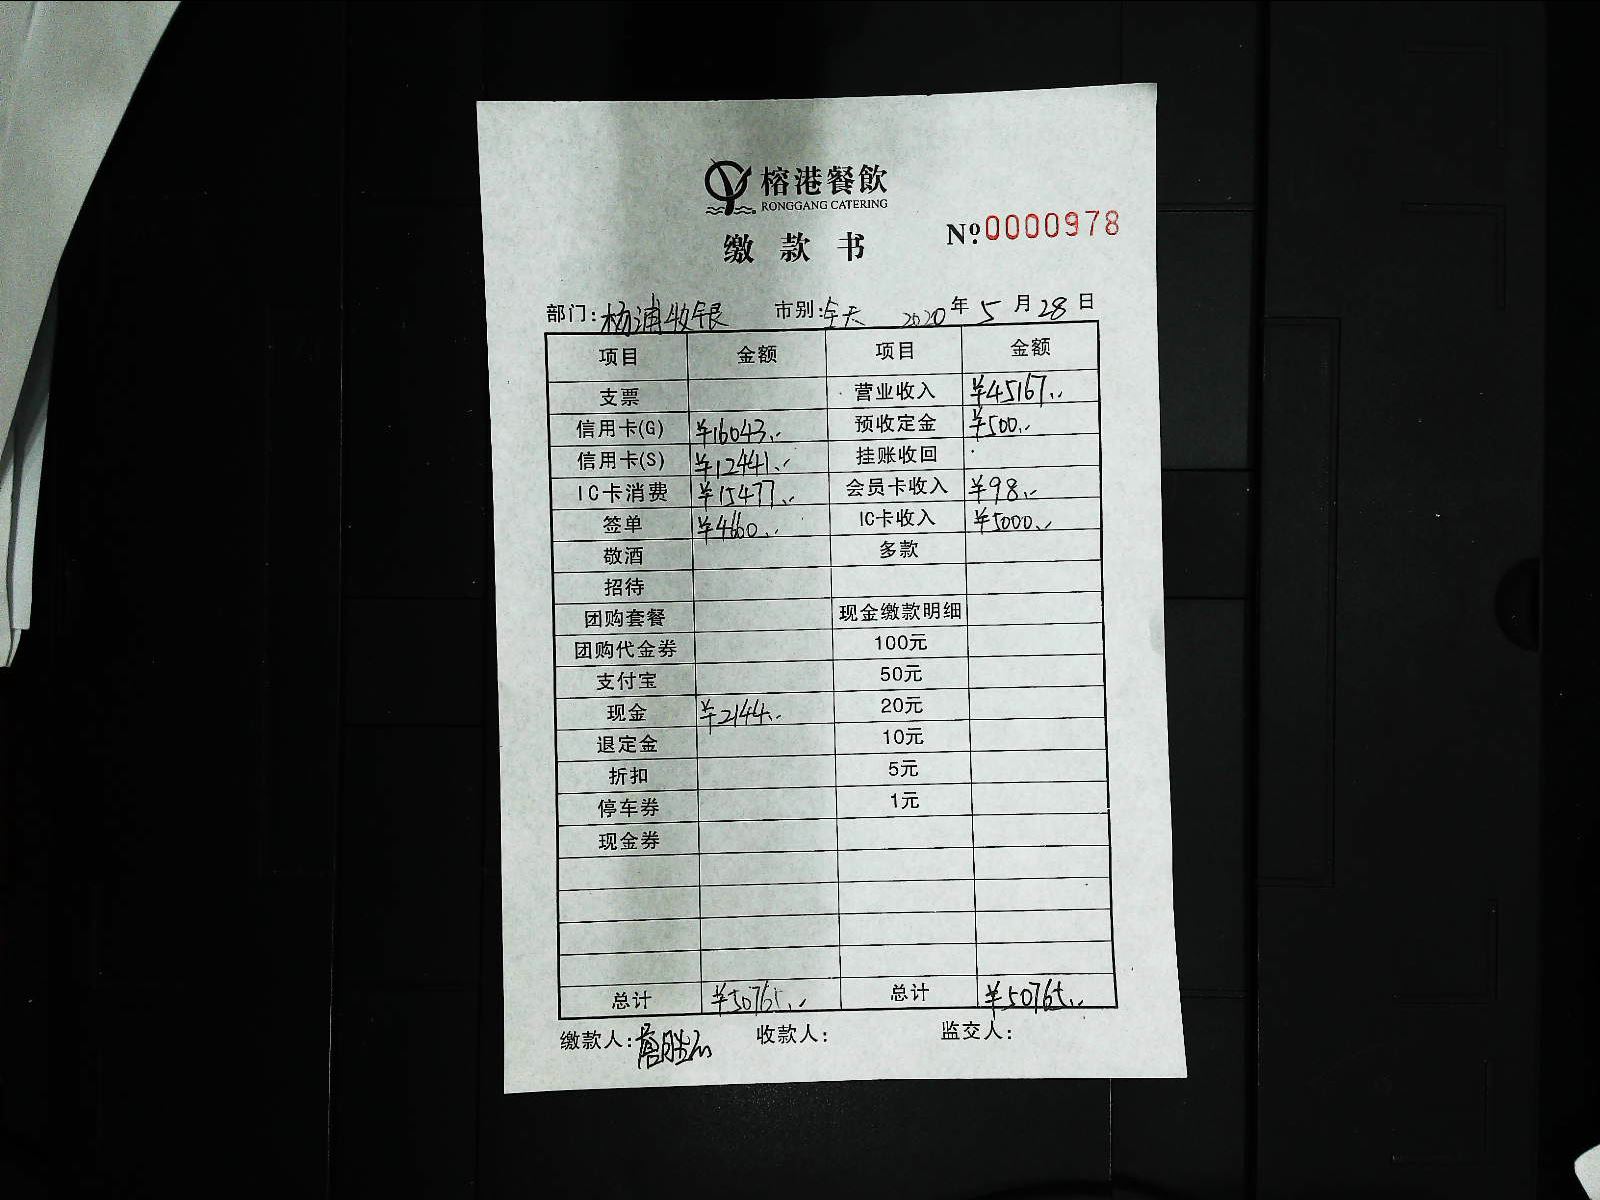 榕港餐飲
RONGGANG CATERING
缴款书 Nº.0000978
部门:杨浦收银 市别:全天 2020年5月28日
项目 金额 项目 金额
支票 营业收入 ¥45167.-
信用卡(G) ¥16043.- 预收定金 ¥500.-
信用卡(S) ¥12441.- 挂账收回
IC卡消费 ¥15477.- 会员卡收入 ¥98.-
签单 ¥4660.- IC卡收入 ¥5000.-
敬酒 多款
招待
团购套餐 现金缴款明细
团购代金券 100元
支付宝 50元
现金 ¥2144.- 20元
退定金 10元
折扣 5元
停车券 1元
现金券
总计 ¥50765.- 总计 ¥50765.-
缴款人: 收款人: 监交人: